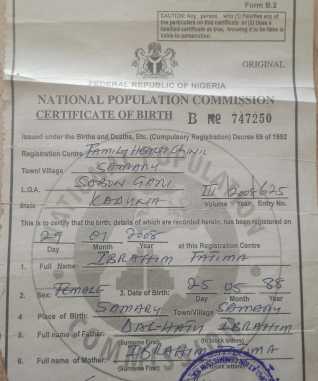 Form B.2
CAUTION: Any person who (1) Falsifies any of
the particulars on this certificate or (2) Uses a
falsified certificate as true, knowing it to be false is
liable to prosecution.
ORIGINAL
FEDERAL REPUBLIC OF NIGERIA
NATIONAL POPULATION COMMISSION
CERTIFICATE OF BIRTH B No 747250
Issued under the Births and Deaths, Etc. (Compulsory Registration) Decree 69 of 1992
Registration Centre Family Health Clinic
Town/Village SAMARU
L.G.A. SABON GARI III 2008 625
State KADUNA Volume Year Entry No.
This is to certify that the birth, details of which are recorded herein, has been registered on
29 01 2008
Day Month Year at this Registration Centre
1. Full Name: IBRAHIM FATIMA
2. Sex: FEMALE 3. Date of Birth: 25 05 88
Day Month Year
4 Place of Birth: SAMARU Town/Village SAMARU
5. Full Name of Father: IBRAHIM
(Surname First) (in block letters)
6. Full Name of Mother: IBRAHIM
(Surname First) (in block letters)